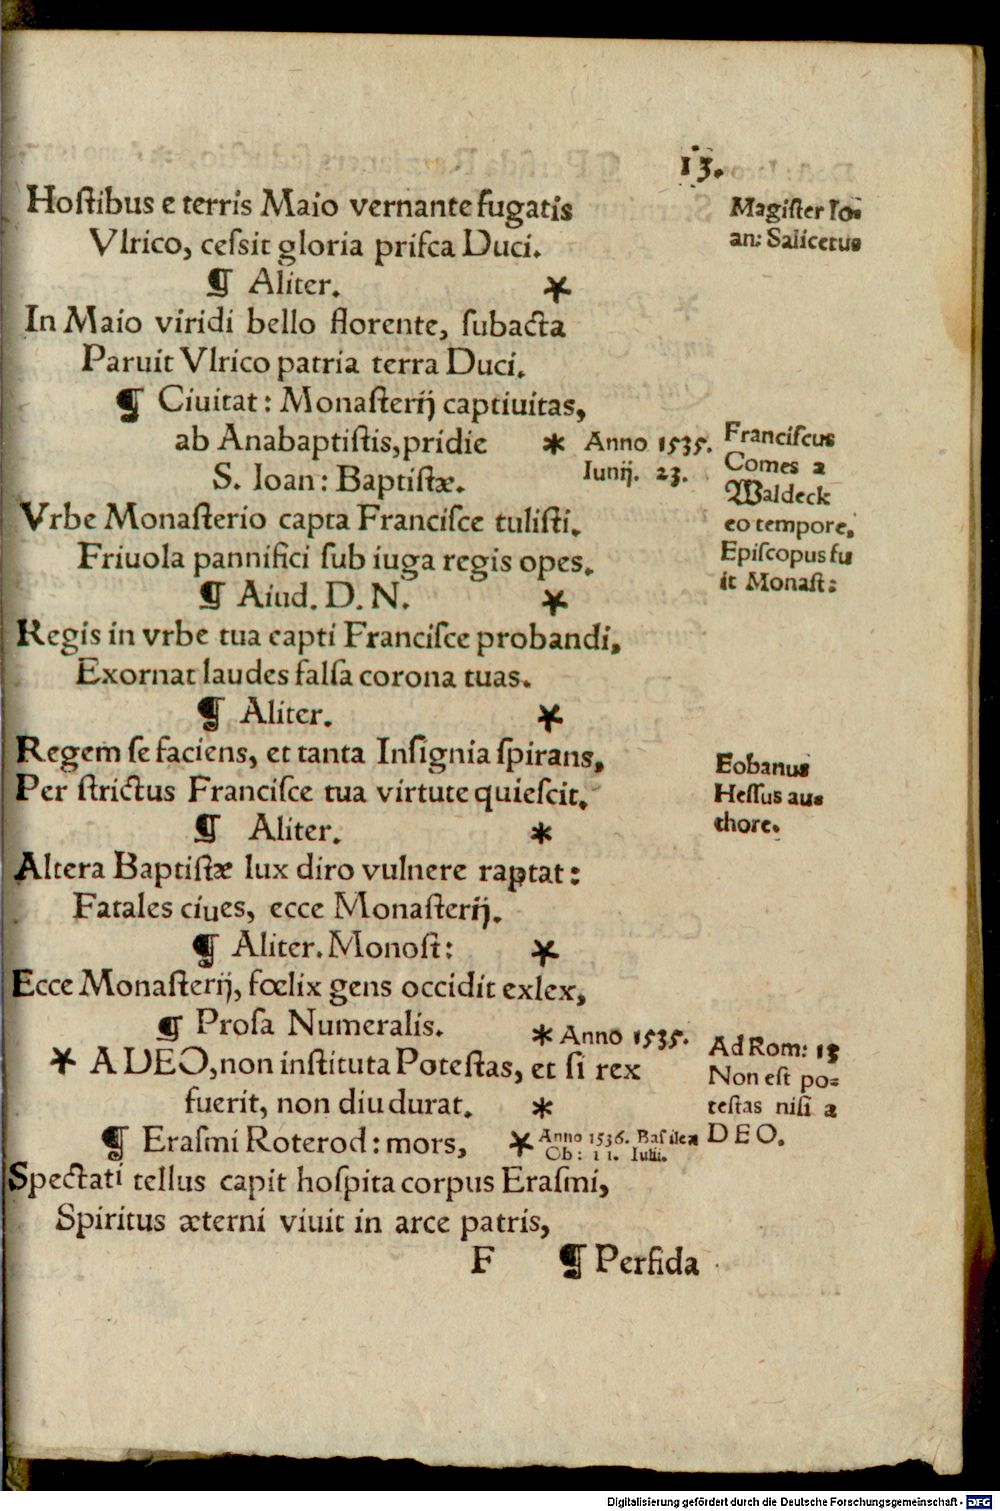 13.
Hoſtibus e terris Maio vernante fugatis
Magiſter Io⸗
an: Salicetus
Vlrico, ceſsit gloria priſca Duci.
¶ Aliter. *
In Maio viridi bello florente, ſubacta
Paruit Vlrico patria terra Duci.
¶ Ciuitat: Monaſterij captiuitas,
ab Anabaptiſtis, pridie * Anno 1535.
S. Ioan: Baptiſtæ. Iunij. 23.
Franciſcus
Comes a
Waldeck
eo tempore,
Epiſcopus fu
it Monaſt:
Vrbe Monaſterio capta Franciſce tuliſti.
Friuola pannifici ſub iuga regis opes.
¶ Aiud. D. N. *
Regis in vrbe tua capti Franciſce probandi,
Exornat laudes falſa corona tuas.
¶ Aliter. *
Regem ſe faciens, et tanta Inſignia ſpirans,
Per ſtrictus Franciſce tua virtute quieſcit.
Eobanus
Heſſus au⸗
thore.
¶ Aliter. *
Altera Baptiſtæ lux diro vulnere raptat:
Fatales ciues, ecce Monaſterij.
¶ Aliter. Monoſt: *
Ecce Monaſterij, fœlix gens occidit exlex,
¶ Proſa Numeralis. * Anno 1535.
* A DEO, non inſtituta Poteſtas, et ſi rex
fuerit, non diu durat. *
Ad Rom: 13
Non eſt po⸗
teſtas niſi a
DEO.
¶ Eraſmi Roterod: mors, * Anno 1536. Baſileæ
Ob: 11. Iulii.
Spectati tellus capit hoſpita corpus Eraſmi,
Spiritus æterni viuit in arce patris,
F ¶ Perfida
Digitalisierung gefördert durch die Deutsche Forschungsgemeinschaft - DFG